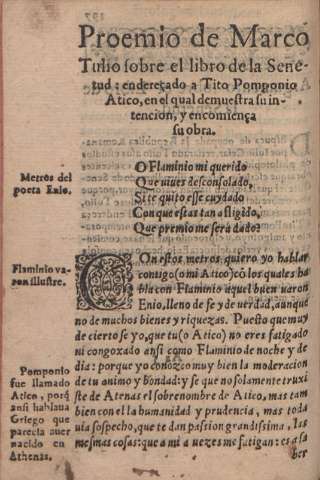 Proemio de Marco
Tulio sobre el libro de la Sene-
tud: endereçado a Tito Pomponio
Atico, en el qual demuestra su in-
tencion, y encomiença
su obra.
Metros del
poeta Enio.
O Flaminio mi querido
Que viues desconsolado,
Si te quito esse cuydado
Con que estas tan afligido,
Que premio me será dado?
Flaminio va-
ron illustre.
Con estos metros quiero yo hablar
contigo (o mi Atico) cõ los quales ha
bla con Flaminio aquel buen varon
Enio, lleno de fe y de verdad, aunque
no de muchos bienes y riquezas. Puesto que muy
de cierto se yo, que tu (o Atico) no eres fatigado
ni congoxado ansi como Flaminio de noche y de
dia: porque yo conozco muy bien la moderacion
de tu animo y bondad: y se que no solamente truxi
ste de Atenas el sobrenombre de Atico, mas tam
bien con el la humanidad y prudencia, mas toda
uia sospecho, que te dan passion grandissima, las
mesmas cosas: que a mi a vezes me fatigan: es a sa
ber
Pomponio
fue llamado
Atico, porq̃
ansi hablaua
Griego que
parecia auer
nacido en
Athenas.